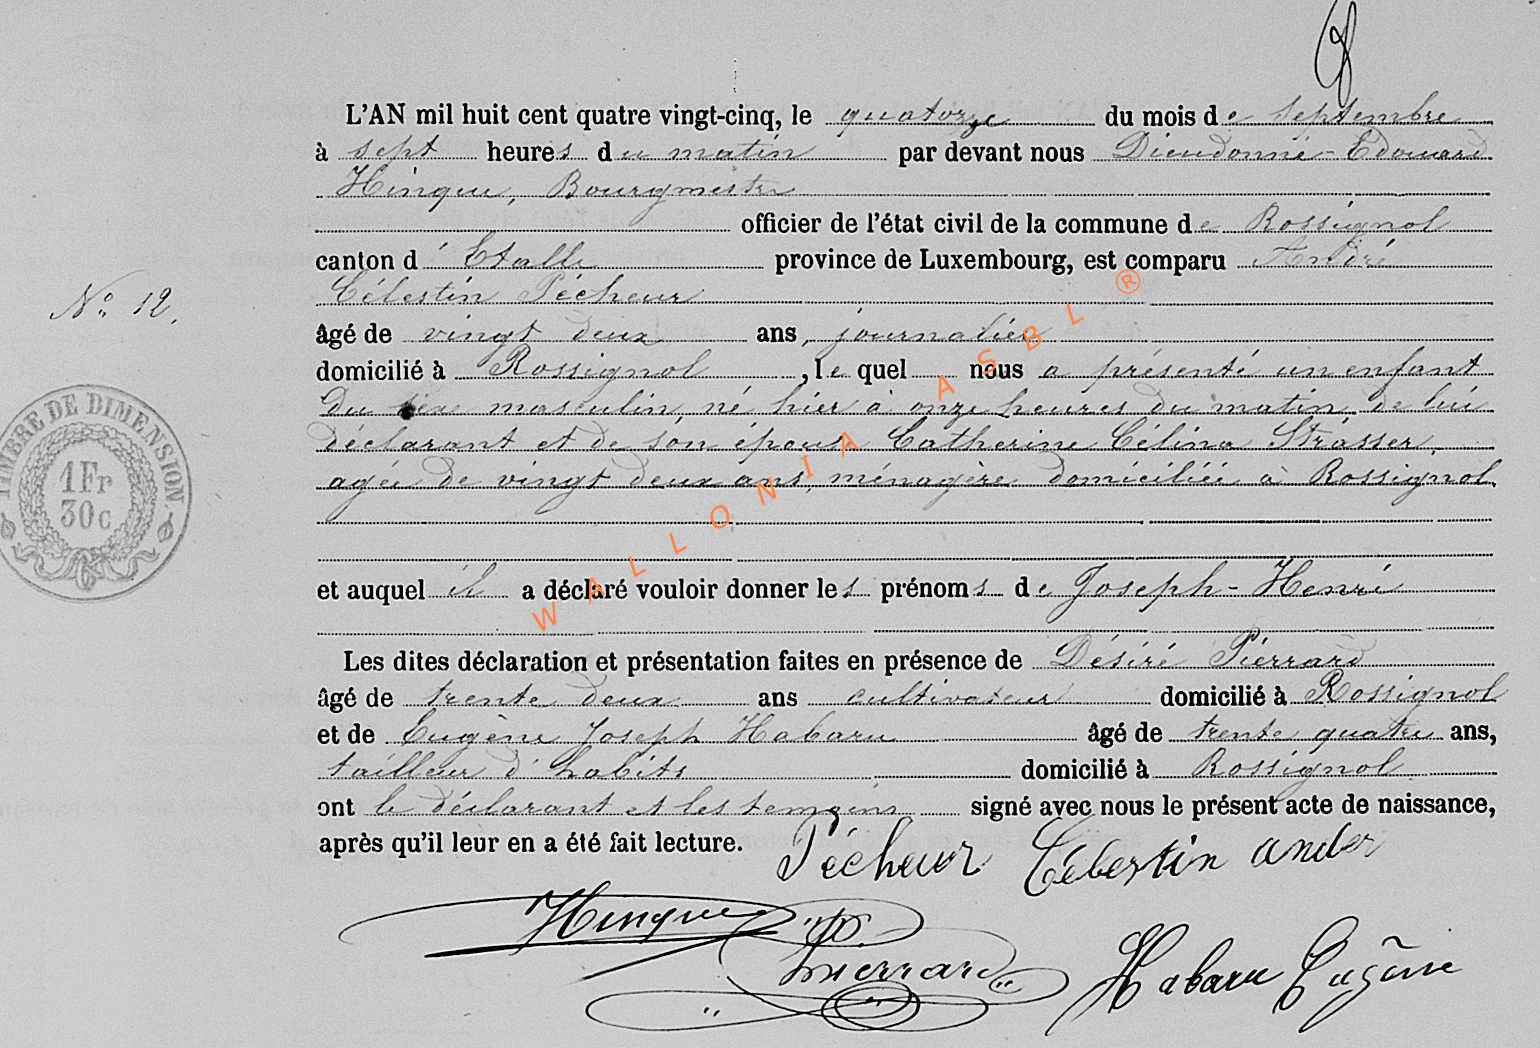 L'AN mil huit cent quatre vingt-cinq, le quatorze du mois de septembre
à sept heures du matin par devant nous Dieudonné-Edouard
Hinque, Bourgmestre
officier de l'état civil de la commune de Rossignol
canton d'Etalle province de Luxembourg, est comparu André
Célestin Pécheur
âgé de vingt deux ans, journalier
domicilié à Rossignol, le quel nous a présenté un enfant
Du sexe masculin, né hier à onze heures du matin de lui
déclarant et de son épouse Catherine Célina Strasser,
agée de vingt deux ans, ménagère domiciliée à Rossignol
N° 12.
TIMBRE DE DIMENSION.
1Fr
30c
et auquel il a déclaré vouloir donner les prénoms de Joseph-Henri
Les dites déclaration et présentation faites en présence de Désiré Piérrard
âgé de trente deux ans cultivateur domicilié à Rossignol
et de Eugène Joseph Habaru âgé de trente quatre ans,
tailleur d'habits domicilié à Rossignol
ont le déclarant et les temoins signé avec nous le présent acte de naissance,
après qu'il leur en a été fait lecture.
Pécheur Célestin ander
Hinque
Pierrard
Habaru Eugène
WALLONIA ASBL ®